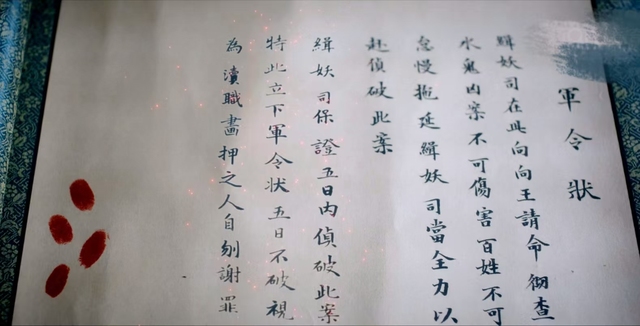 軍令狀
緝妖司在此向向王請命徹查
水鬼凶案不可傷害百姓不可
怠慢拖延緝妖司當全力以
赴偵破此案
緝妖司保證五日內偵破此案
特此立下軍令狀五日不破視
為瀆職畫押之人自刎謝罪